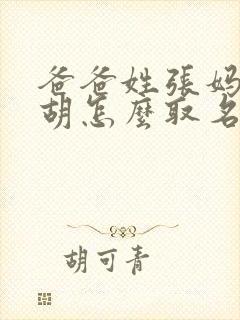 爸爸姓張妈
胡怎麼取名
胡可青